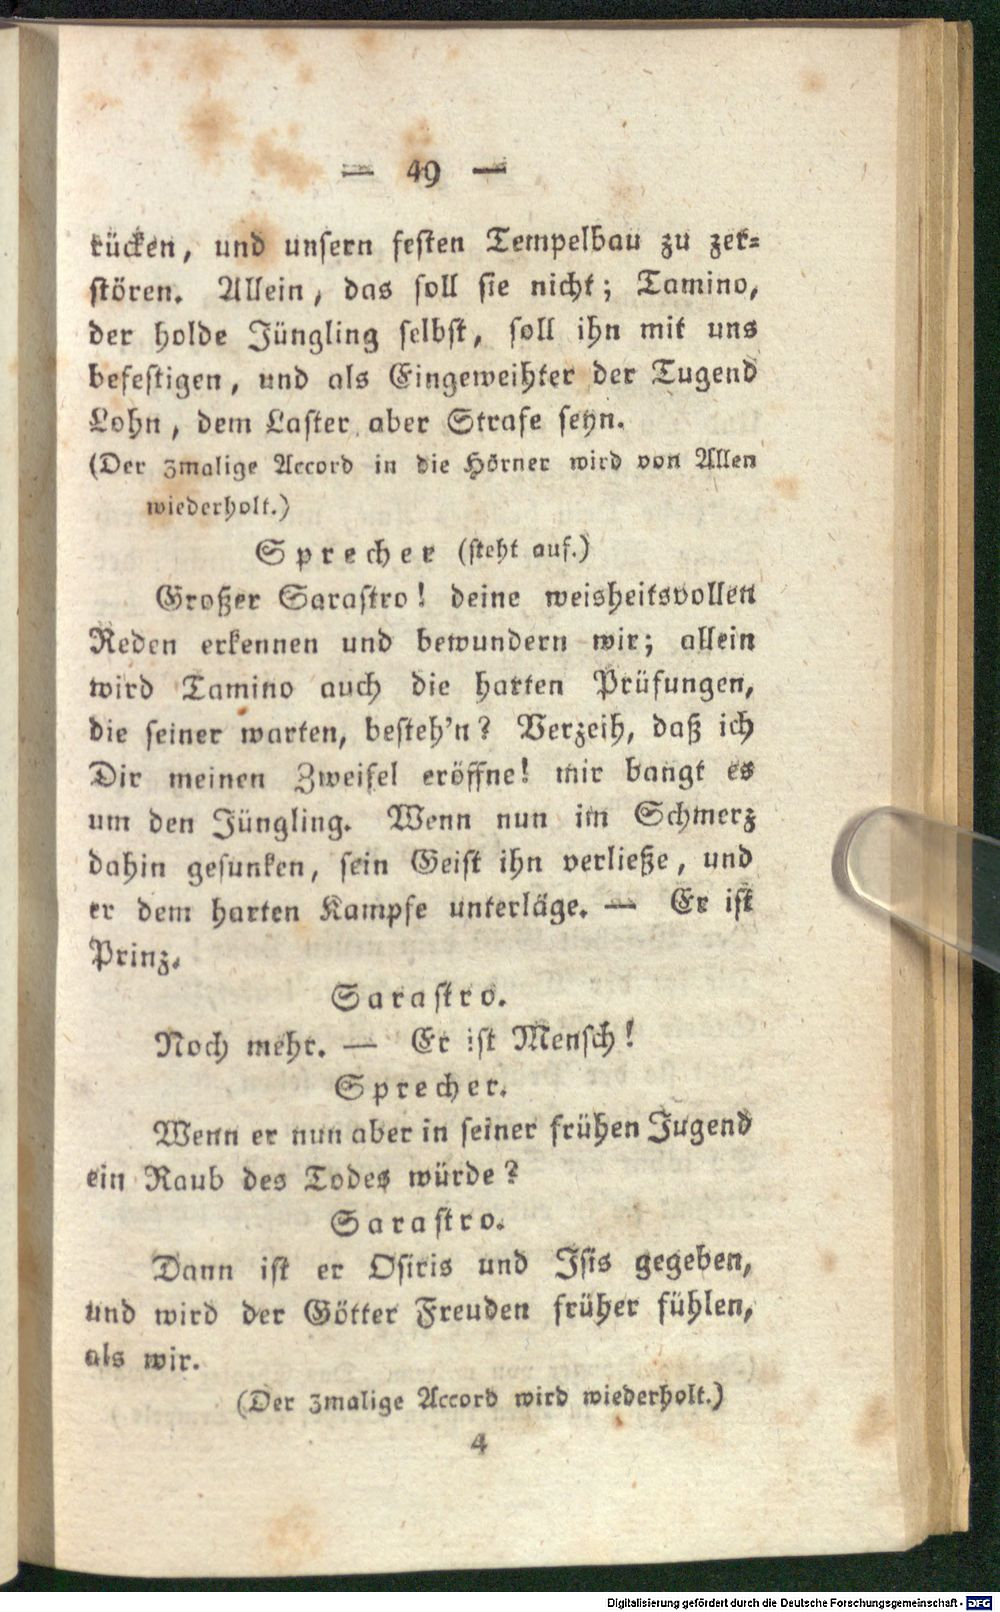 — 49 —
rücken, und unsern festen Tempelbau zu zer-
stören. Allein, das soll sie nicht; Tamino,
der holde Jüngling selbst, soll ihn mit uns
befestigen, und als Eingeweihter der Tugend
Lohn, dem Laster aber Strafe seyn.
(Der 3malige Accord in die Hörner wird von Allen
wiederholt.)
Sprecher (steht auf.)
Großer Sarastro! deine weisheitsvollen
Reden erkennen und bewundern wir; allein
wird Tamino auch die harten Prüfungen,
die seiner warten, besteh'n? Verzeih, daß ich
Dir meinen Zweifel eröffne! mir bangt es
um den Jüngling. Wenn nun im Schmerz
dahin gesunken, sein Geist ihn verließe, und
er dem harten Kampfe unterläge. — Er ist
Prinz.
Sarastro.
Noch mehr. — Er ist Mensch!
Sprecher.
Wenn er nun aber in seiner frühen Jugend
ein Raub des Todes würde?
Sarastro.
Dann ist er Osiris und Isis gegeben,
und wird der Götter Freuden früher fühlen,
als wir.
(Der 3malige Accord wird wiederholt.)
4
Digitalisierung gefördert durch die Deutsche Forschungsgemeinschaft - DFG